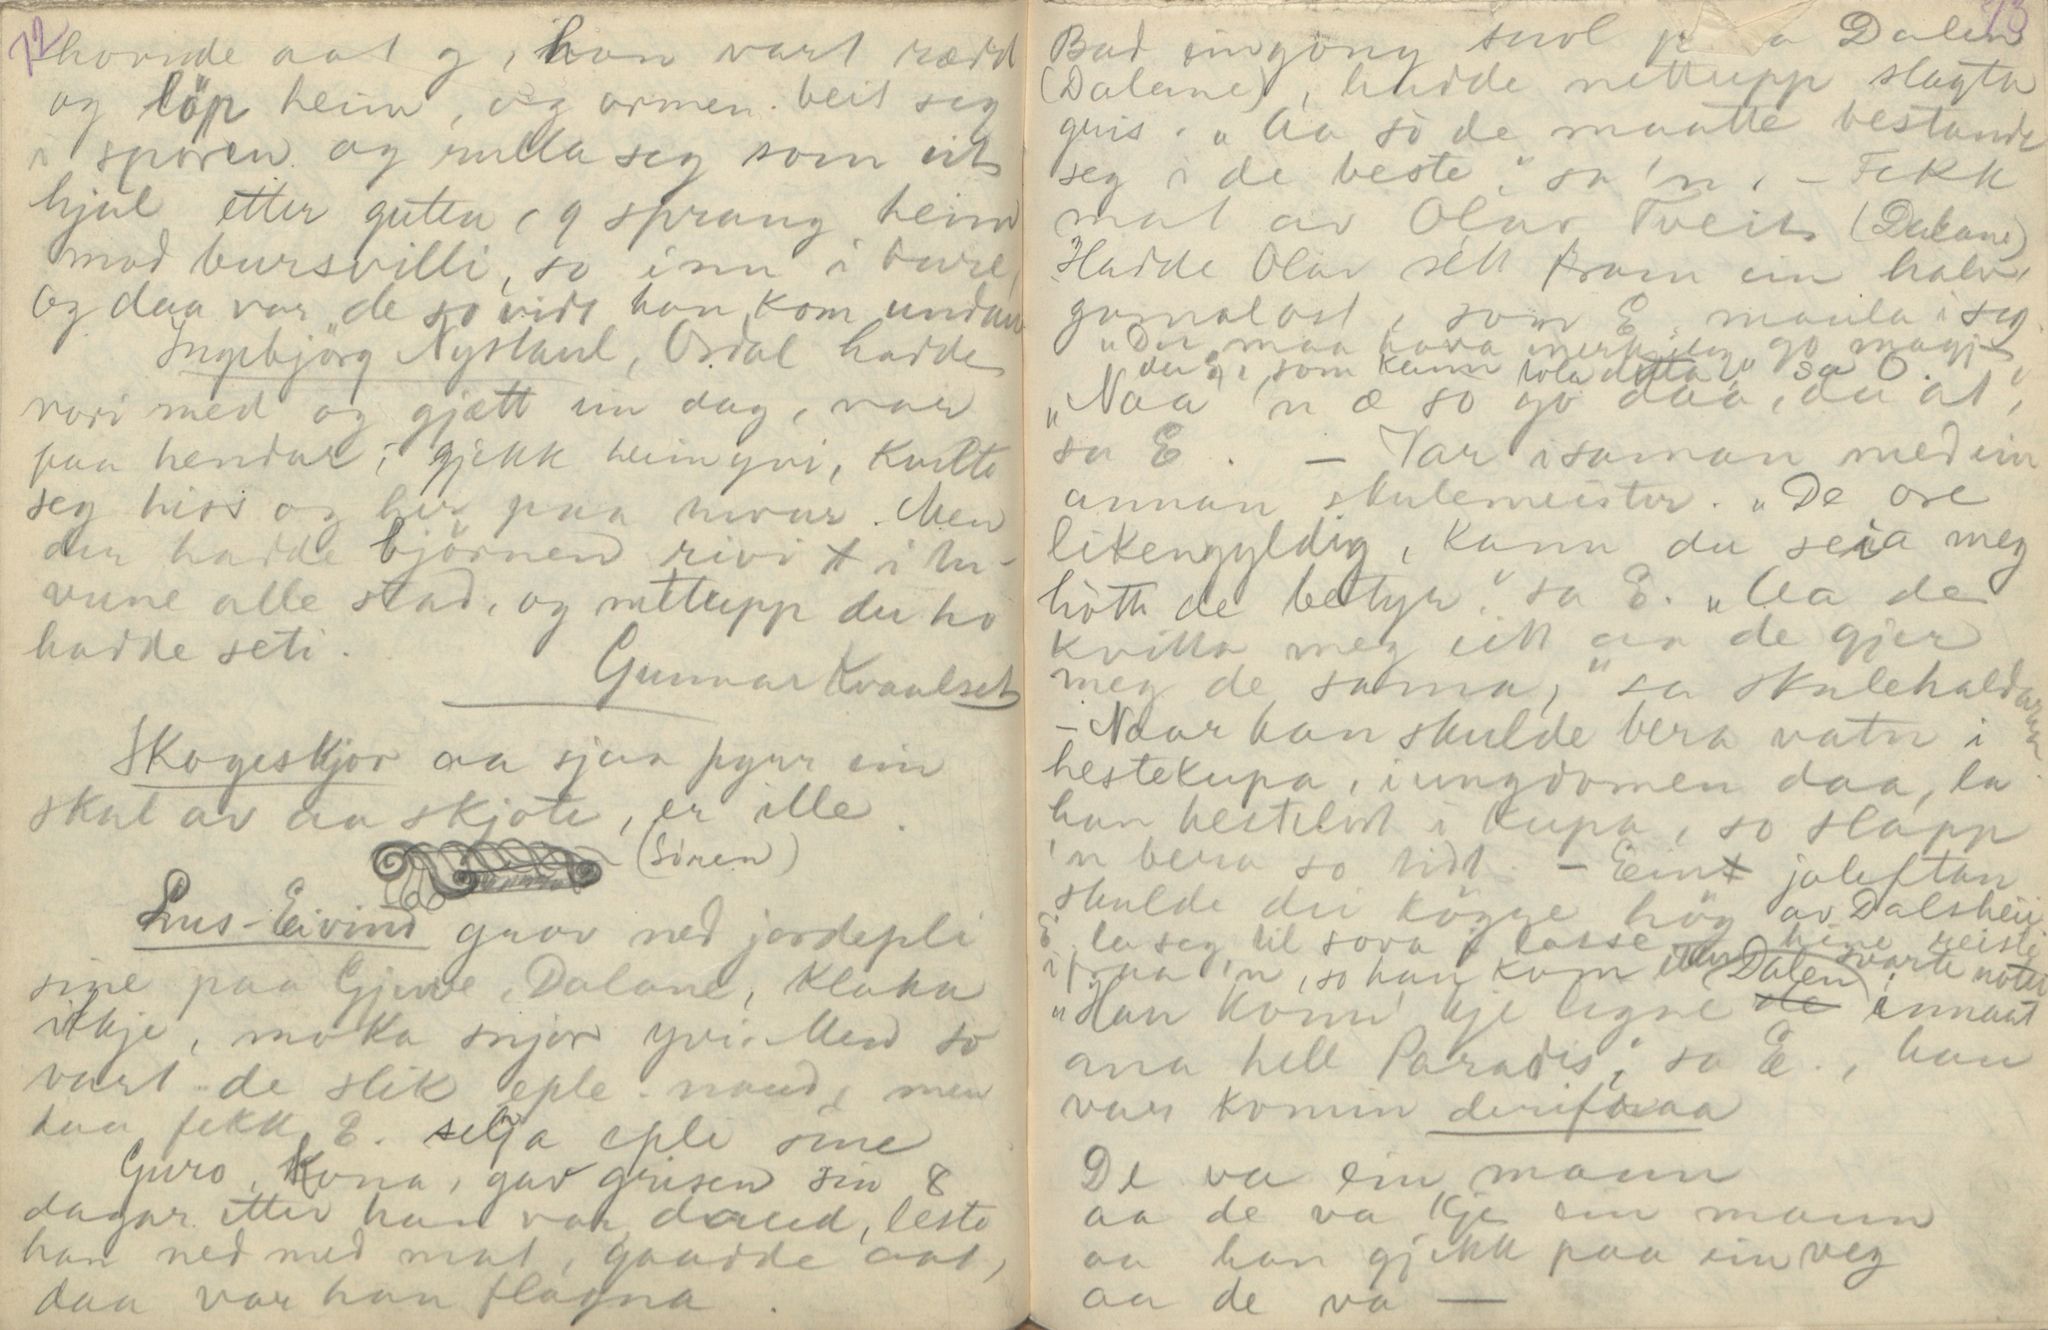 72
hovude aat g, han vart rædd
og löp heim, og ormen beit seg
i sporen og rulla seg som eit
hjul etter guten, g sprang heim
mod bursvilli, so inn i bure,
og daa var de so vidt han kom undan
Ingebjörg Nystaul, Ordal hadde
vori med og gjætt ein dag, var
paa hendar, gjekk heimyvi, kvilte
seg hiss og her paa tuvur. Men
der hadde björnen rivi t i tu-
vune alle stad, og nettupp der ho
hadde seti.
Gunnar Kvaalset
Skogeskjor aa sjaa fyrr ein
skal av aa skjote, er ille.
(Sören)
Lus-Eivind grov ned jordepli
sine paa Gjuve, Dalane, klaka
ikkje, moka snjor yvi. Men so
vart de slik eple-naud, men
daa fekk E. selja epli sine
Guro, kona, gav grisen sin 8
dagar etter han var daud, leste
han ned med mat, gaadde aat,
daa var han flogna.
73
Bad eingong suvl Dalen
(Dalane), hadde nettupp slagta
gris. "Aa so de maatte bestande
seg i de beste," sa 'n, - Fekk
mat av Olav Tveit (Dalane)
Hadde Olav sett fram ein halv
gamalost, som E. maula i seg.
"Du maa hava go magje
du, som kunn tola detta," sa O.
"Naa 'n æ so go daa, du at",
sa E. - Var isaman med ein
annan skulemeister. "De ore
likengyldig, kann du seia meg
hött de betyr." sa E. "Aa de
kvitta meg eitt aa de gjer
meg de sama," sa skulehaldaren
- Naar han skulde bera vatn i
hestekupa, i ungdomen daa, la
han i kupa, so slapp
'n bera so tidt. - Eint joleftan
skulde dei höy av Dalsheii
E. la seg til sova i lasse, hine reiste
ifraa 'n, so han kom etter (Dalen) svarte notti
"Han konn' kje ligne de innaat
ana hell Paradis," sa E., han
var komin derifraa
De va ein mann
aa de va kje ein mann
aa han gjekk paa ein veg
aa de va —